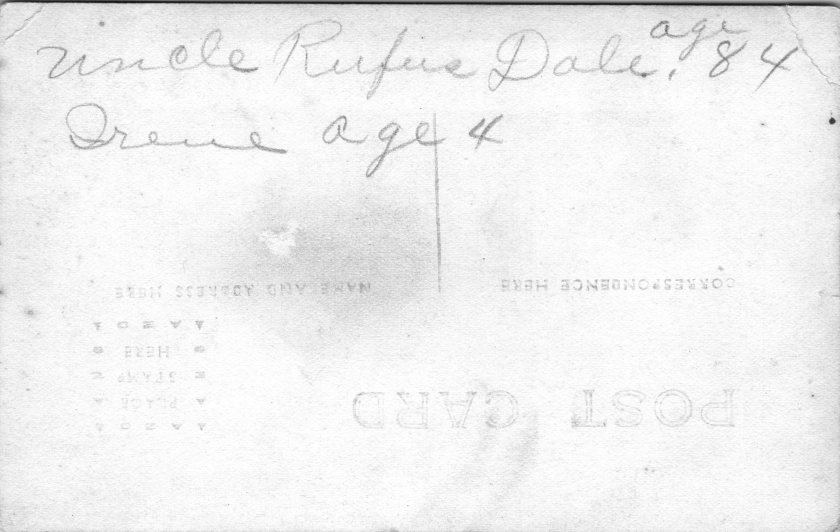 Uncle Rufus Dale. age 84
Irene age 4
POST CARD
PLACE
STAMP
HERE
CORRESPONDENCE HERE
NAME AND ADDRESS HERE